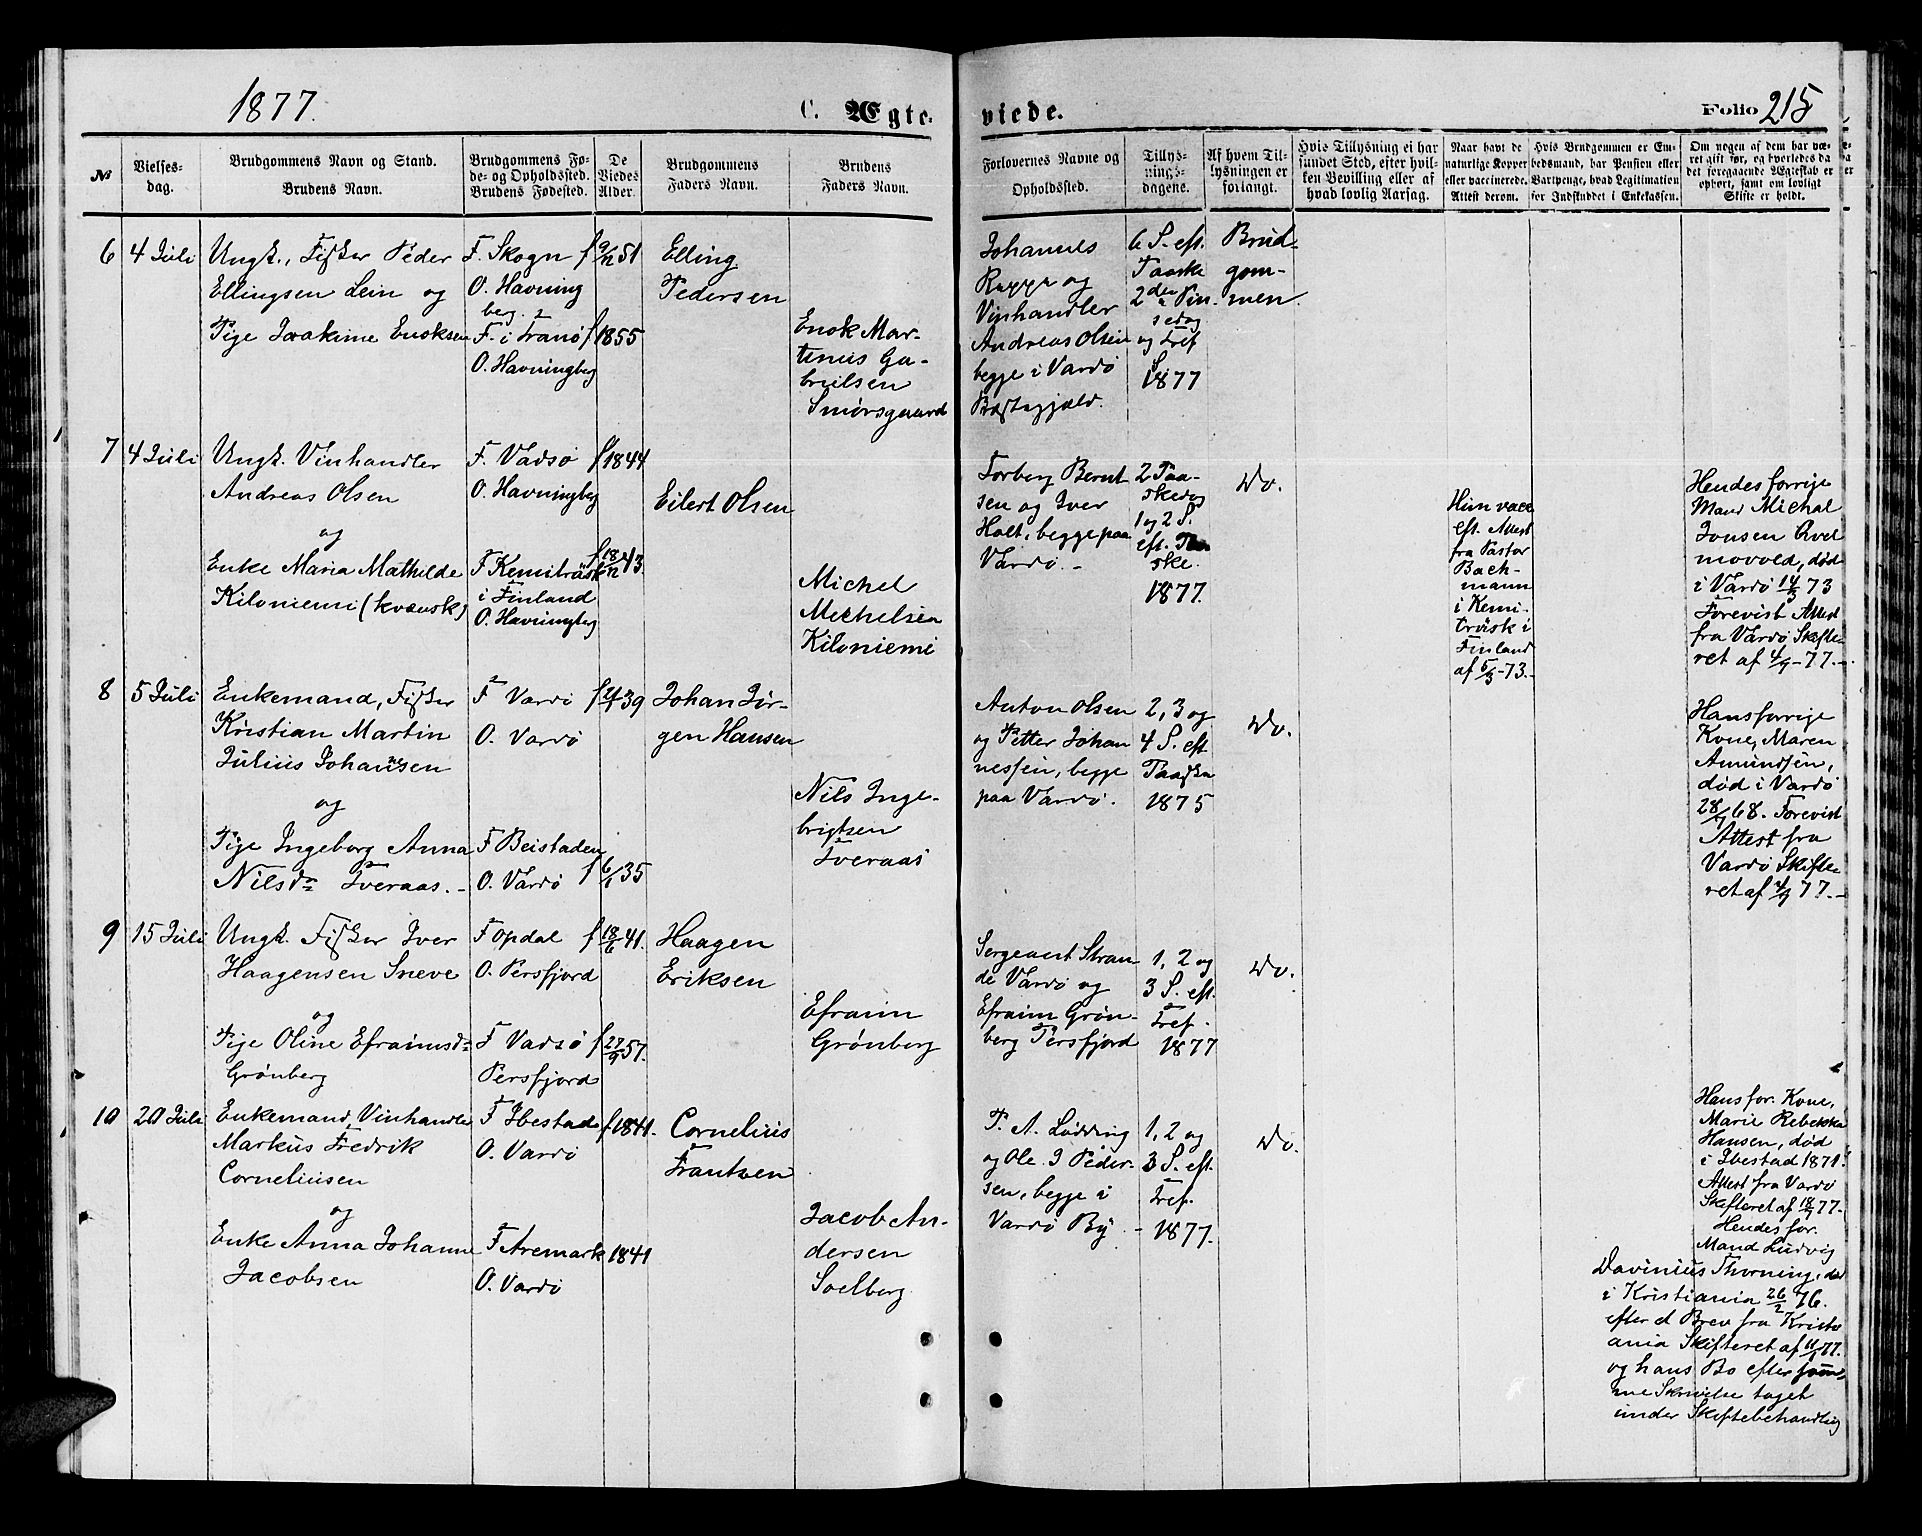 1877.
C. Ægte-
viede.
Folio 215
№
Vielses-
dag.
Brudgommens Navn og Stand.
Brudens Navn.
Brudgommens Fø-
de- og Opholdssted.
Brudens Fødested.
De
Viedes
Alder.
Brudgommens
Faders Navn.
Brudens
Faders Navn.
Forlovernes Navne og
Opholdssted.
Tillys-
nings-
dagene.
Af hvem Til-
lysningen er
forlangt.
Hvis Tillysning ei har
fundet Sted, efter hvil-
ken Bevilling eller af
hvad lovlig Aarsag.
Naar havt de
naturlige Kopper
eller vaccinerede.
Attest derom.
Hvis Brudgommen er Em-
bedsmand, har Pension eller
Vartpenge, hvad Legitimation
for Indskuddet i Enkekassen.
Om nogen af dem har væ-
ret gift før, og hvorledes da
det foregaaende Ægteskab er
ophørt, samt om lovligt
Skifte er holdt.
6
4 Juli
Ungk., Fisker Peder
Ellingsen Lein og
Pige Joakime Enoksen
F. Skogn
O. Havning
berg.
F. i Tranø
O. Havningberg
f 9/12 51
f 1855
Elling
Pedersen
Enok Mar-
tinus Ga-
brielsen
Smørsgaard
Johannes
og
Vinhandler
Andreas Olsen
begge i Vardø
Præstegjæld.
6 S. eft.
Paaske
2den Pin
sedag
og Tref
S
1877
Brud-
gom-
men
7
4 Juli
Ungk. Vinhandler
Andreas Olsen
og
Enke Maria Mathilde
Kiloniemi (kvænsk)
F. Vadsø
O. Havningberg
F Kemiträsk
i Finland
O. Havningberg
f 1844
f 18/12 43.
Eilert Olsen
Michel
Michelsen
Kiloniemi
Torberg Bernt
sen og Iver
Holt, begge paa
Vardø. -
2 Paa-
skedag
1 og 2 S.
eft. Paa
ske.
1877.
Do.
Hun vacc
eft. Attest
fra Pastor
Bach-
mann
i Kemi-
träsk i
Finland
af 5/3-73.-
Hendes forrige
Mand Michal
Jonsen
movold, død
i Vardø 14/5 73
Forevist Attest
fra Vardø Skifte
ret af 4/9-77.-
8
5 Juli
Enkemand, Fisker
Kristian Martin
Julius Johansen
og
Pige Ingeborg Anna
Nilsdr Tveraas. -
F Vardø
O. Vardø
F Beistaden
O. Vardø
f 21/1 39
f 6/1 35
Johan Jør-
gen Hansen
Nils Inge-
brigtsen
Tveraas
Anton Olsen
og Petter Johan
nessen, begge
paa Vardø.
2, 3 og
4 S. eft
Paaske
1875
Do.
Hans forrige
Kone, Maren
Amundsen,
død i Vardø
68. Forevist
Attest fra
Vardø Skifte
ret af 4/9 77.-
9
15 Juli
Ungk. Fisker Iver
Haagensen Sneve
og
Pige Oline Efraimsdr
Grønberg
F Opdal
O. Persfjord
F Vadsø
Persfjord
f 18/6 41.
f 27/9 57.
Haagen
Eriksen
Efraim
Grønberg
Sergeant Stran-
de Vardø og
Efraim Grøn-
berg Persfjord
1, 2 og
3 S. eft.
Tref.
1877
Do.
10
20 Juli
Enkemand, Vinhandler
Markus Fredrik
Corneliusen
og
Enke Anna Johanne
Jacobsen
F Ibestad
O. Vardø
F Aremark
O. Vardø
f 1841.
1841
Cornelius
Frantsen
Jacob An-
dersen
Solberg
P. A. Lødding
og Ole J Peder-
sen, begge i
Vardø By -
1, 2 og
3 S. eft.
Tref.
1877.
Do.
Hans for. Kone,
Marie Rebekka
Hansen, død
i Ibestad 1871.
Attest fra Vardø
Skifteret af 18/7 77.-
Hendes for.
Mand Ludvig
Davinius Thorning, død
i Kristiania 26/2 76.
efter d Brev fra Kristi
ania Skifteret af 77.
og hans Bo efter samm
me Skrivelse taget
under Skiftebehandling